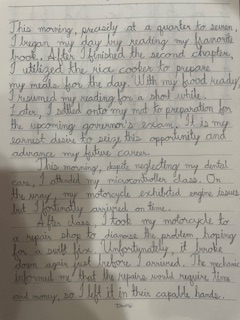 This morning, precisely at a quarter to seven,
I began my day by reading my favorite
book. After I finished the second chapter,
I utilized the rice cooker to prepare
my meals for the day. With my food ready,
I resumed my reading for a shot while.
Later, I settled onto my mat to preparation for
the upcoming governor's exam. It is my
earnest desire to seize this opportunity and
advance my future career.
This morning, despite neglecting my dental
care, I attended my microcontroller class. On
the way, my motorcycle exhibited engine issues
but I fortunately arrived on time.
After class, I took my motorcycle to
a repair shop to diagnose the problem hoping
for a swift fix. Unfortunately, it broke
down again just before I arrived. The mechanic
informed me that the repairs would require time
and money, so I left it in their capable hands.